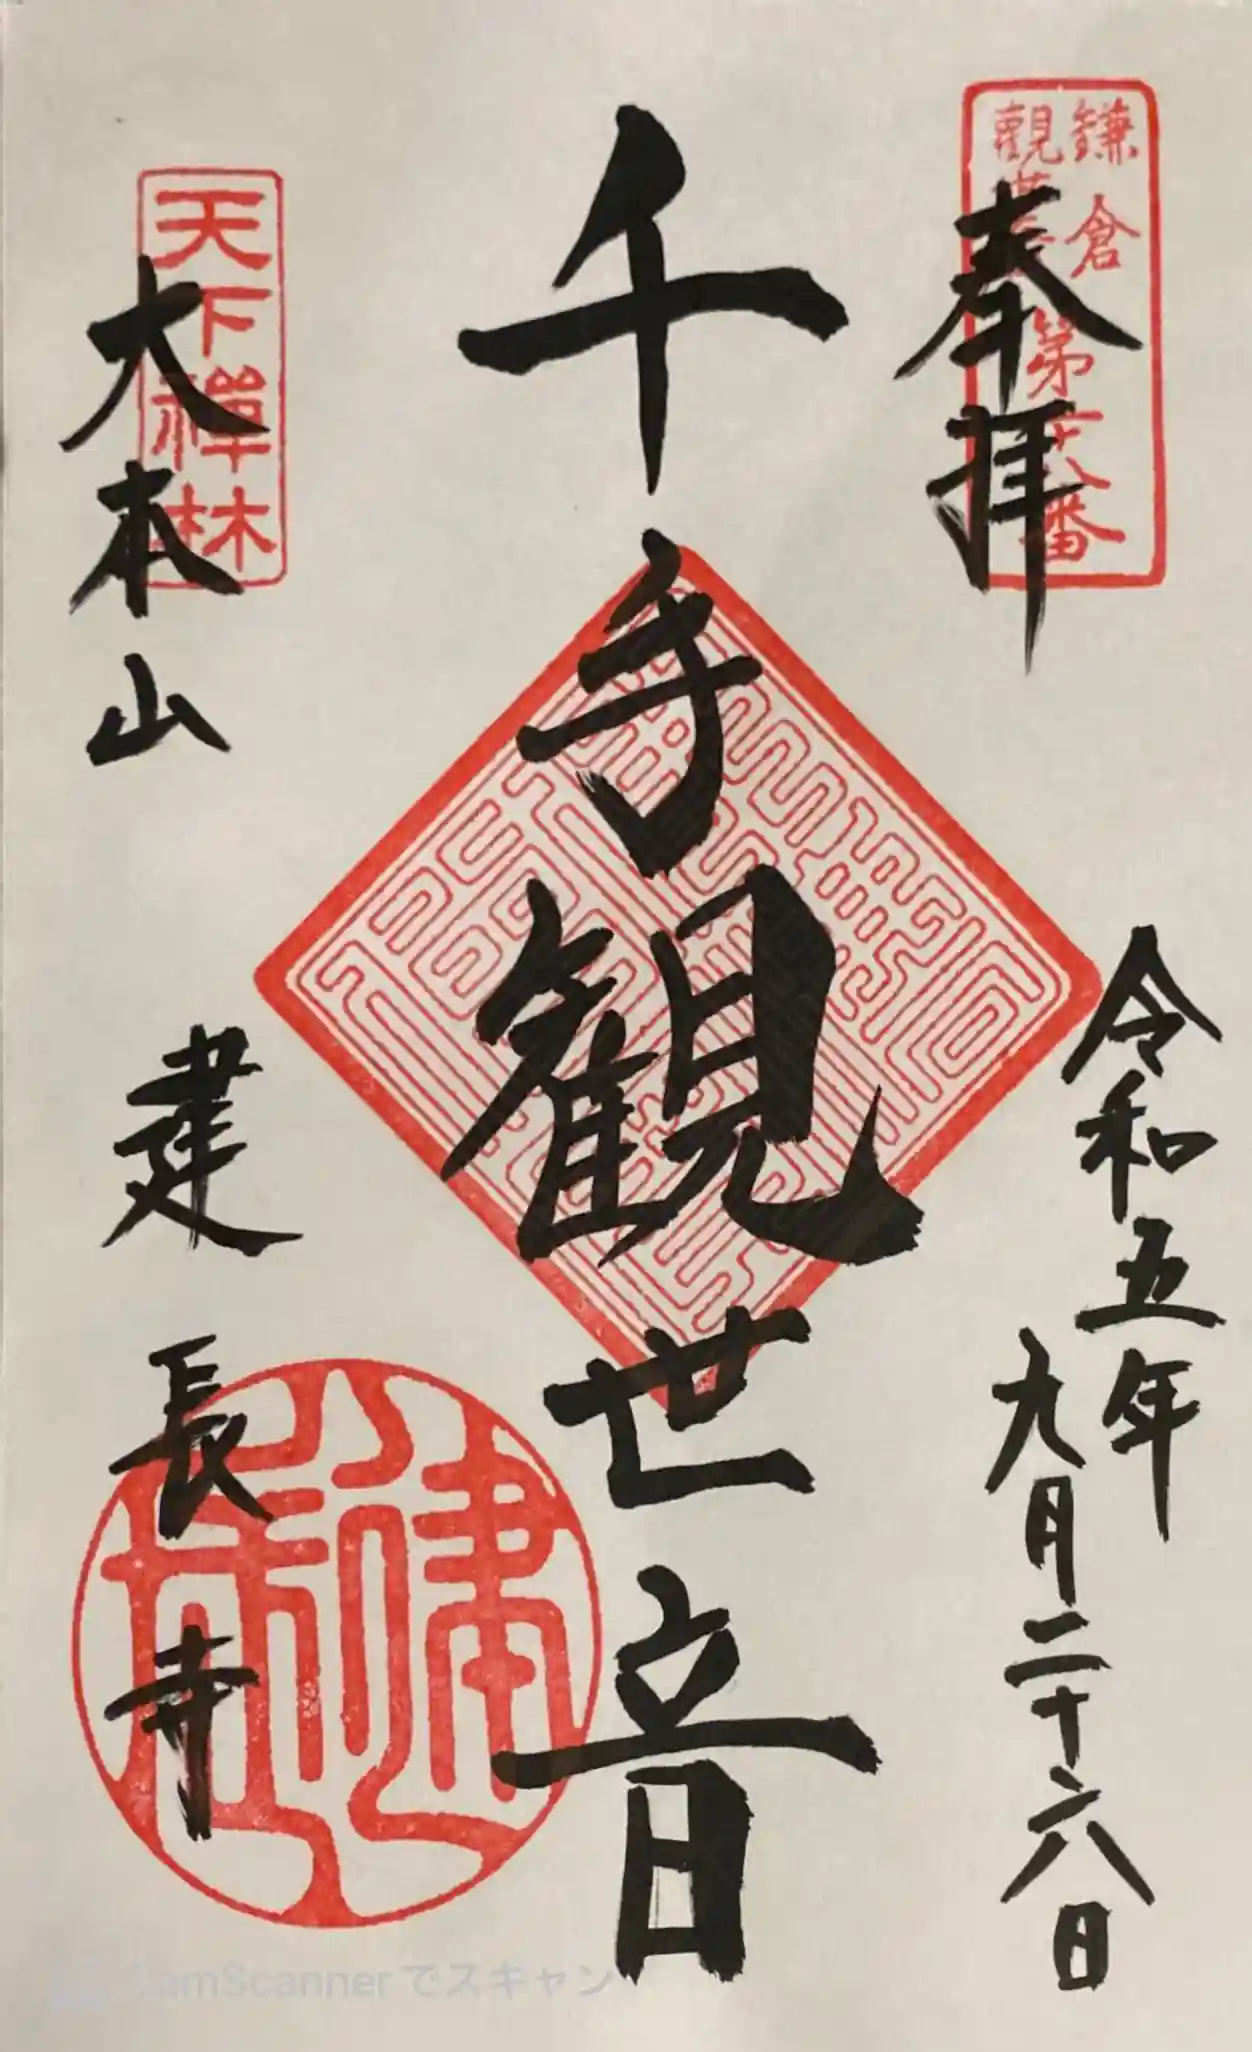 奉拝
鎌倉
觀世音
第廿八番
令和五年
九月二十六日
千手観世音
天下禅林
大本山
建長寺
CamScanner でスキャン